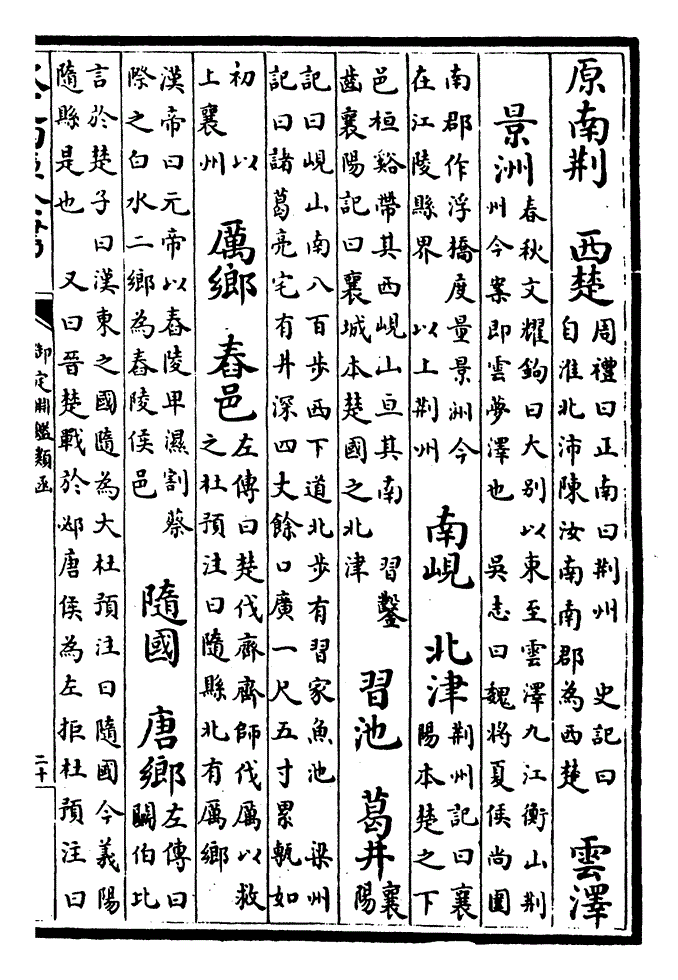 原南荆　西楚
周禮曰正南曰荆州　史記曰
自淮北沛陳汝南南郡為西楚
雲澤
景洲
春秋文耀鉤曰大別以東至雲澤九江衡山荆
州今案即雲夢澤也　吳志曰魏將夏侯尚圍
南郡作浮橋度量景洲今
在江陵縣界　以上荆州
南峴　北津
荆州記曰襄
陽本楚之下
邑桓谿帶其西峴山亘其南　習鑿
齒襄陽記曰襄城本楚國之北津
習池　葛井
襄
陽
記曰峴山南八百步西下道北步有習家魚池　梁州
記曰諸葛亮宅有井深四丈餘口廣一尺五寸累甎如
初　以
上襄州
厲鄉　舂邑
左傳曰楚伐齊齊師伐厲以救
之杜預注曰隨縣北有厲鄉
漢帝曰元帝以舂陵卑濕割蔡
際之白水二鄉為舂陵侯邑
隨國　唐鄉
左傳曰
鬬伯比
言於楚子曰漢東之國隨為大杜預注曰隨國今義陽
隨縣是也　又曰晉楚戰於邲唐侯為左拒杜預注曰
御定淵鑑類函
二十